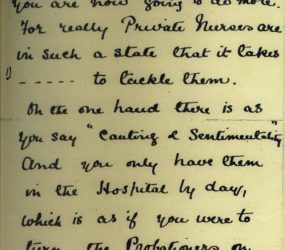 you are now going to do more.
For really Private Nurses are
in such a state that it takes
1) ----- to tackle them.
On the one hand there is as
you say "Canting & Sentimentality"
And you only have them
in the Hospital by day,
which is as if you were to
turn the Probationers on